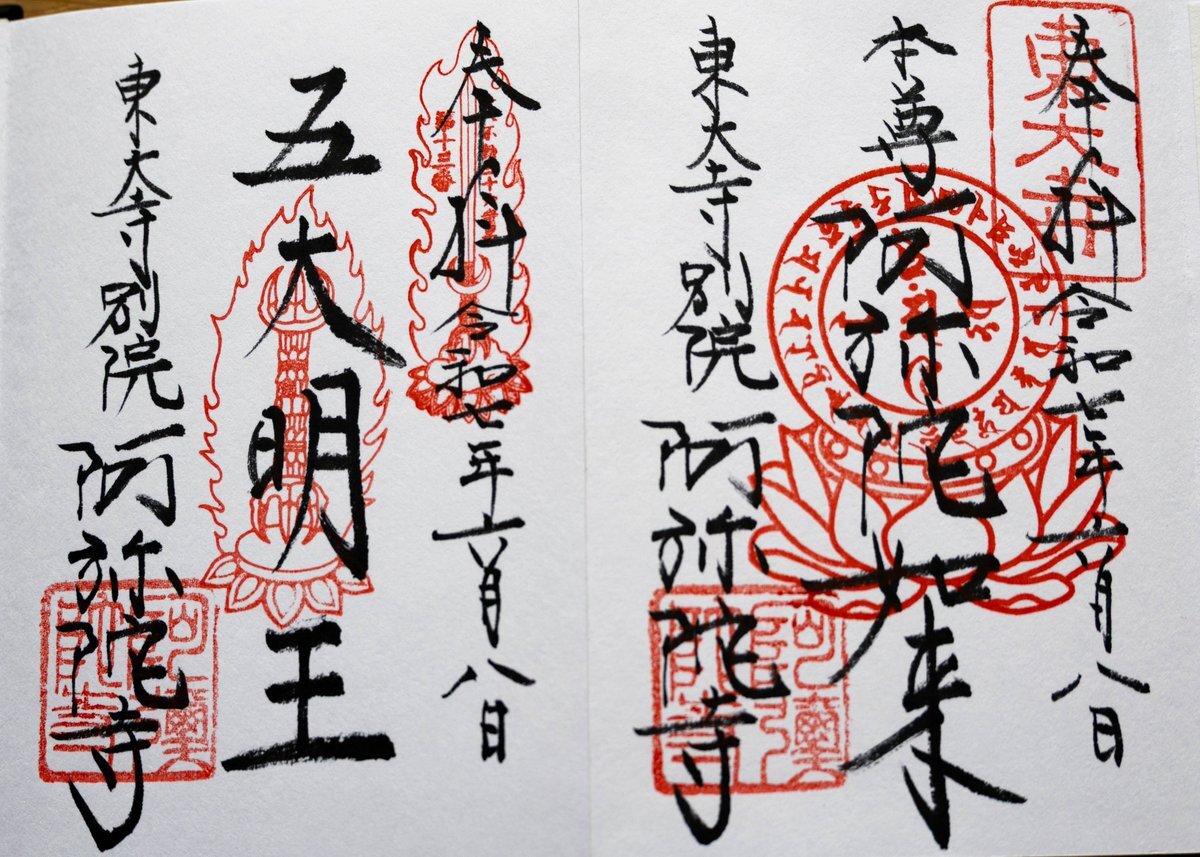 東大寺
奉拝 令和七年六月八日
本尊 阿弥陀如来
東大寺別院 阿弥陀寺
奉拝 令和七年六月八日
第十三番
五大明王
東大寺別院 阿弥陀寺